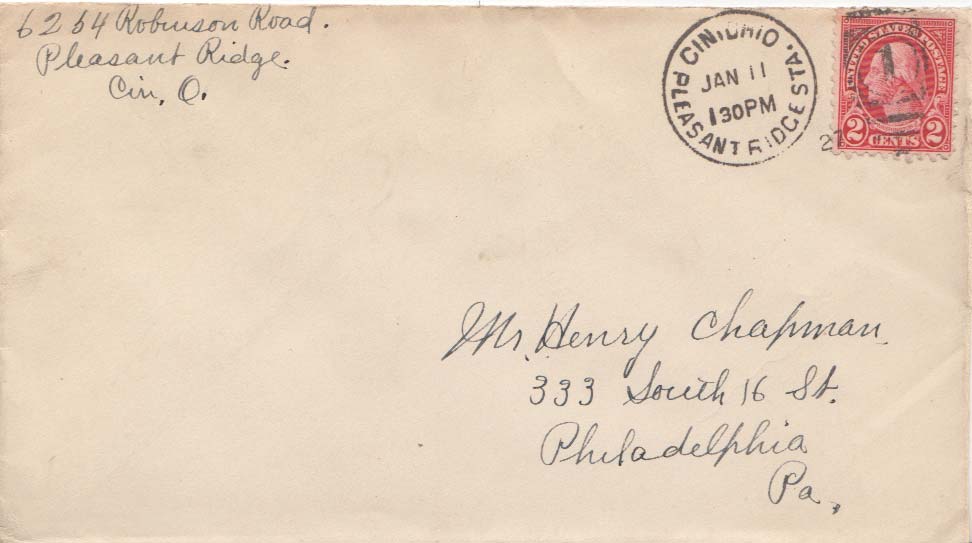 6254 Robinson Road.
Pleasant Ridge.
Cin, O.
CIN. OHIO.
JAN 11
130PM
PLEASANT RIDGE STA.
27
UNITED STATES POSTAGE
1
2 CENTS 2
Mr. Henry Chapman
333 South 16 St.
Philadelphia
Pa,